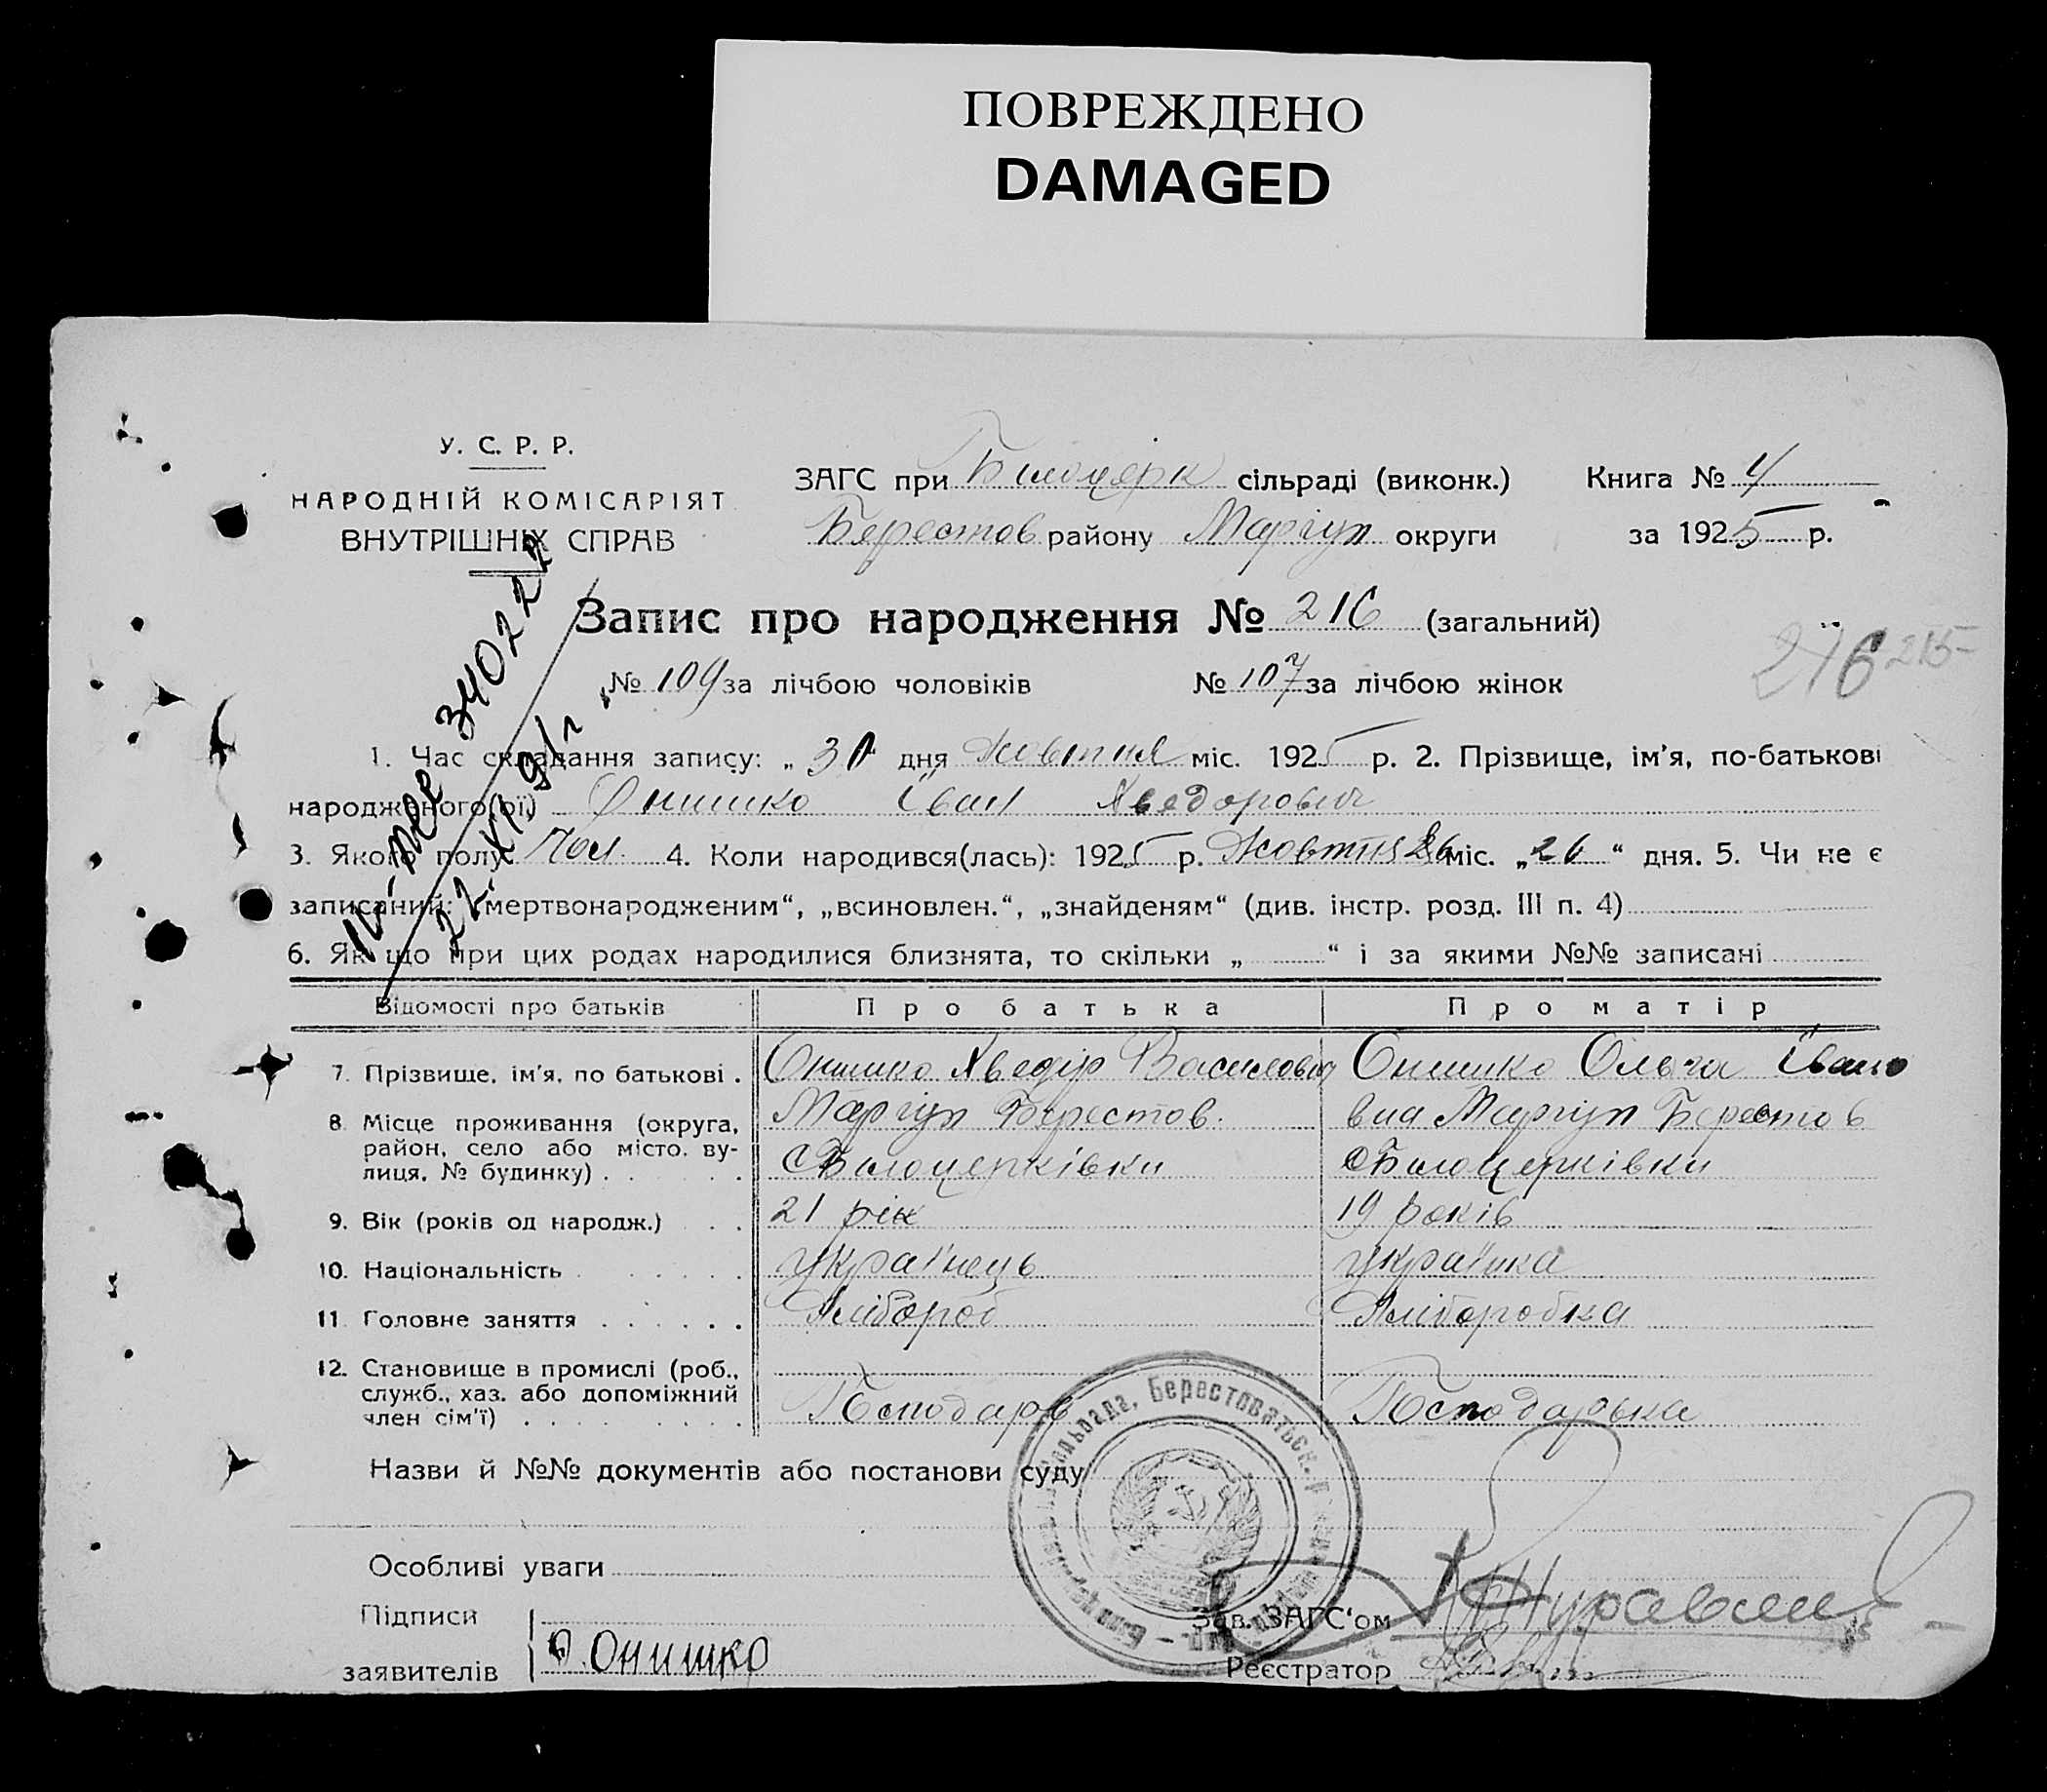 ПОВРЕЖДЕНО
DAMAGED
У. С. Р. Р.
НАРОДНІЙ КОМІСАРІЯТ
ВНУТРІШНІХ СПРАВ
ЗАГС при Билоцерк сільраді (виконк.) Книга № 4
Берестов району Маріуп округи за 1925 р.
Запис про народження № 216 (загальний)
216 215
№ 109 за лічбою чоловіків № 107 за лічбою жінок
1. Час складання запису: „30 дня Жовтня міс. 1925 р. 2. Прізвище, ім'я, по-батькові
народженого(ої) Онишко Іван Хведорович
3. Якого полу Чол. 4. Коли народився(лась): 1925 р. Жовтня 26 міс. „26“ дня. 5. Чи не є
записаний: „мертвонародженим“, „всиновлен.“, „знайденям“ (див. інстр. розд. III п. 4)
6. Як що при цих родах народилися близнята, то скільки „ “ і за якими №№ записані
34022
22. XI 91г
Відомості про батьків Про батька Про матір
7. Прізвище, ім'я, по батькові . Онишко Хведір Василович Онишко Ольга Івано
8. Місце проживання (округа, район, село або місто, вулиця, № будинку) . Маріуп Берестов. вна Маріуп Берестов
с Билоцерківки с Билоцерківки
9. Вік (років од народж.) . . 21 рік 19 років
10. Національність українець українка
11. Головне заняття Хлібороб Хліборобка
12. Становище в промислі (роб., служб., хаз. або допоміжний член сім'ї) Господарь Господарька
Назви й №№ документів або постанови суду
Особливі уваги
Підписи
заявителів О. Онишко
Зав. ЗАГС'ом
Реєстратор